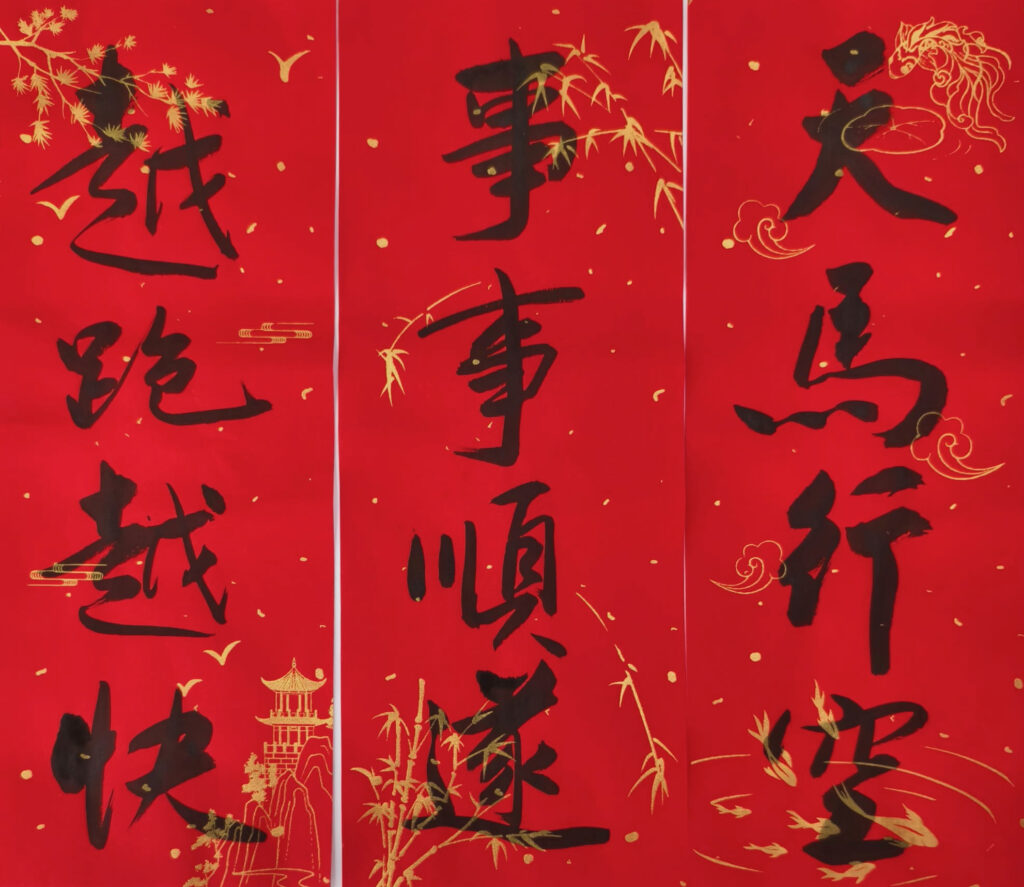 天馬行空
事事順遂
越跑越快